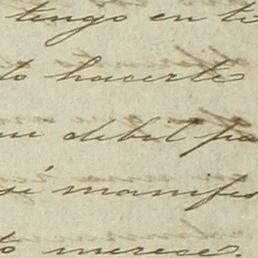 tengo en ti
to hacerte
debil pa
sé manifes
to merece.